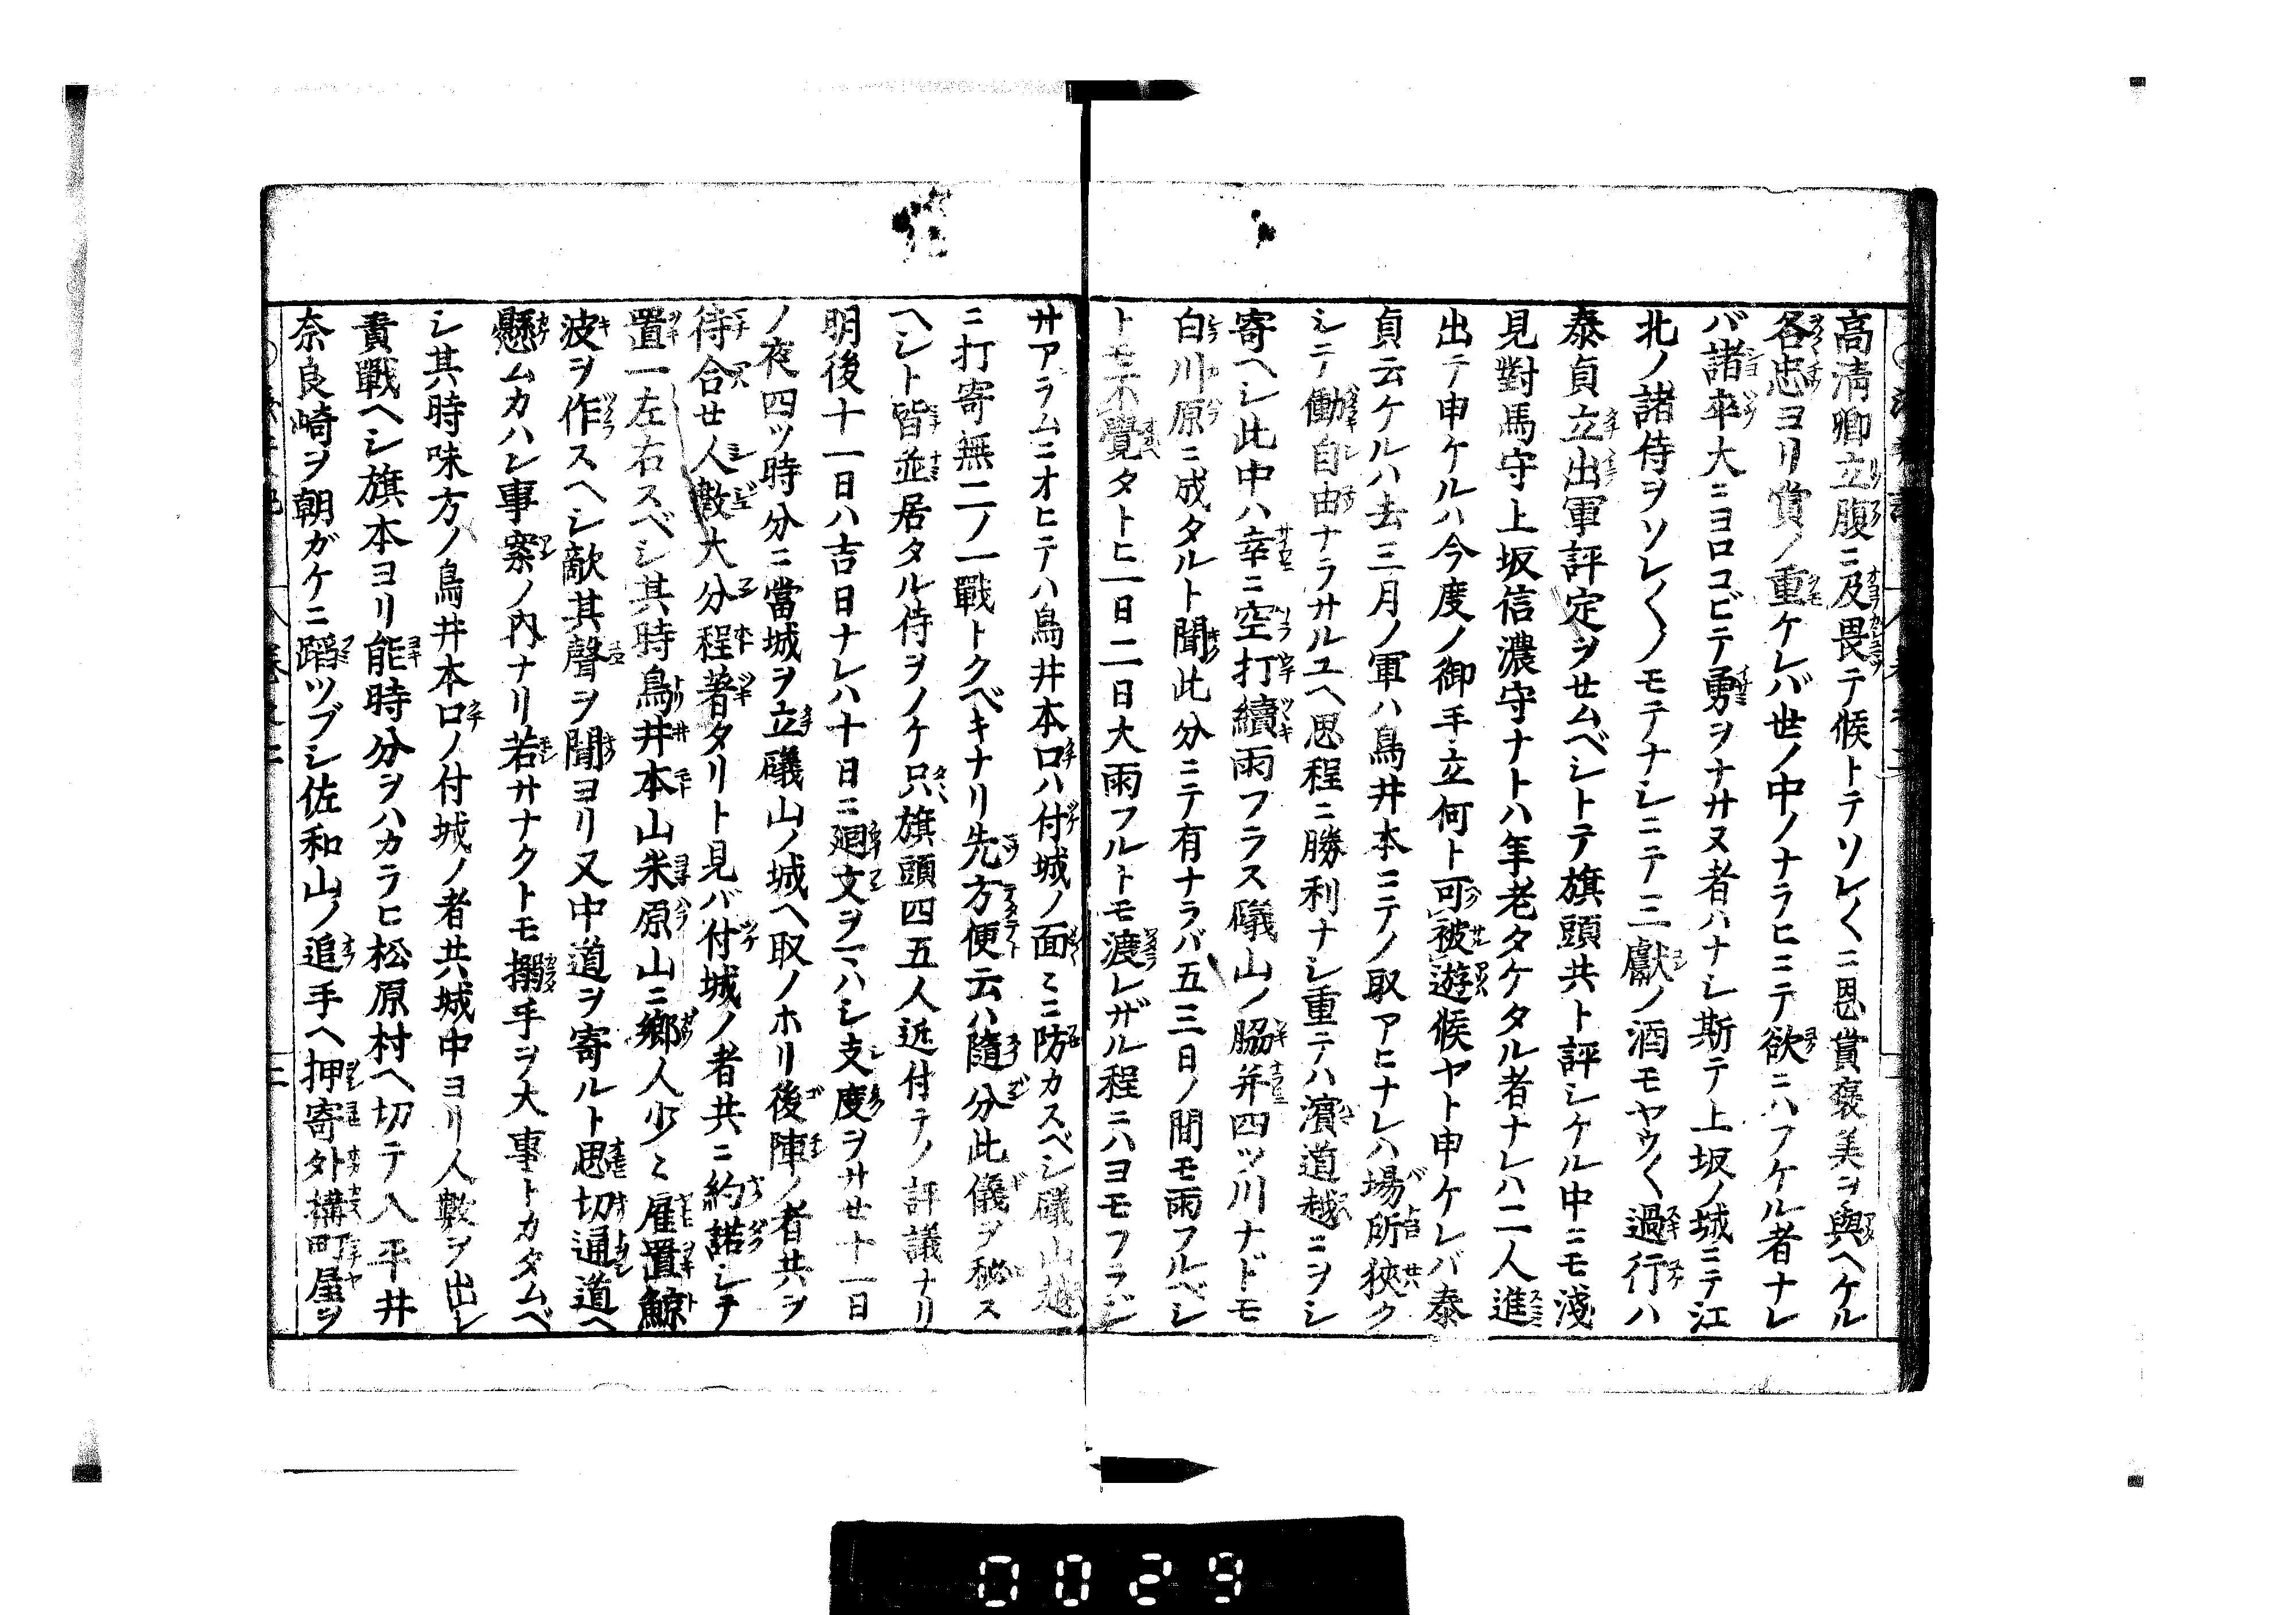 高清卿立腹ニ及畏テ候トテソレ〱ニ恩賞褒美ヲ與ヘケル
各忠ヨリ賞ノ重ケレバ世ノ中ノナラヒニテ欲ニハフケル者ナレ
バ諸卒大ニヨロコビテ勇ヲナサヌ者ハナシ斯テ上坂ノ城ニテ江
北ノ諸侍ヲソレ〱ノモテナシニテ三獻ノ酒モヤウ〱過行ハ
泰貞立出軍評定ヲせムベシトテ旗頭共ト評シケル中ニモ淺
見對馬守上坂信濃守ナトハ年老タケタル者ナレハ二人進
出テ申ケルハ今度ノ御手立何ト可被遊候ヤト申ケレバ泰
貞云ケルハ去三月ノ軍ハ鳥井本ニテノ取アヒナレハ場所狹ク
シテ働自由ナラサルユヘ思程ニ勝利ナシ重テハ濱道越ニヲシ
寄ヘシ此中ハ幸ニ空打續雨フラス礒山ノ脇并四ツ川ナドモ
白川原ニ成タルト聞此分ニテ有ナラバ五三日ノ間モ雨フルベシ
トモ不覺タトヒ一日二日大雨フルトモ漉レザル程ニハヨモフラジ
サアラムニオヒテハ鳥井本口ハ付城ノ面〻ニ防カスベシ礒山越
ニ打寄無二ノ一戰トクベキナリ先方便云ハ隨分此儀ヲ秘ス
ヘシト皆並居タル侍ヲノケ只旗頭四五人近付テノ評議ナリ
明後十一日ハ吉日ナレハ十日ニ廻文ヲマハシ支度ヲサせ十一日
ノ夜四ツ時分ニ當城ヲ立礒山ノ城ヘ取ノホリ後陣ノ者共ヲ
待合せ人數大分程著タリト見バ付城ノ者共ニ約諾シテ
置一左右スベシ其時鳥井本山米原山ニ郷人少〻雇置鯨
波ヲ作スヘシ敵其聲ヲ聞ヨリ又中道ヲ寄ルト思切通道ヘ
懸ムカハン事案ノ内ナリ若サナクトモ搦手ヲ大事トカタムベ
シ其時味方ノ鳥井本口ノ付城ノ者共城中ヨリ人數ヲ出シ
責戰ヘシ旗本ヨリ能時分ヲハカラヒ松原村ヘ切テ入平井
奈良崎ヲ朝ガケニ蹈ツブシ佐和山ノ追手ヘ押寄外構町屋ヲ
0029